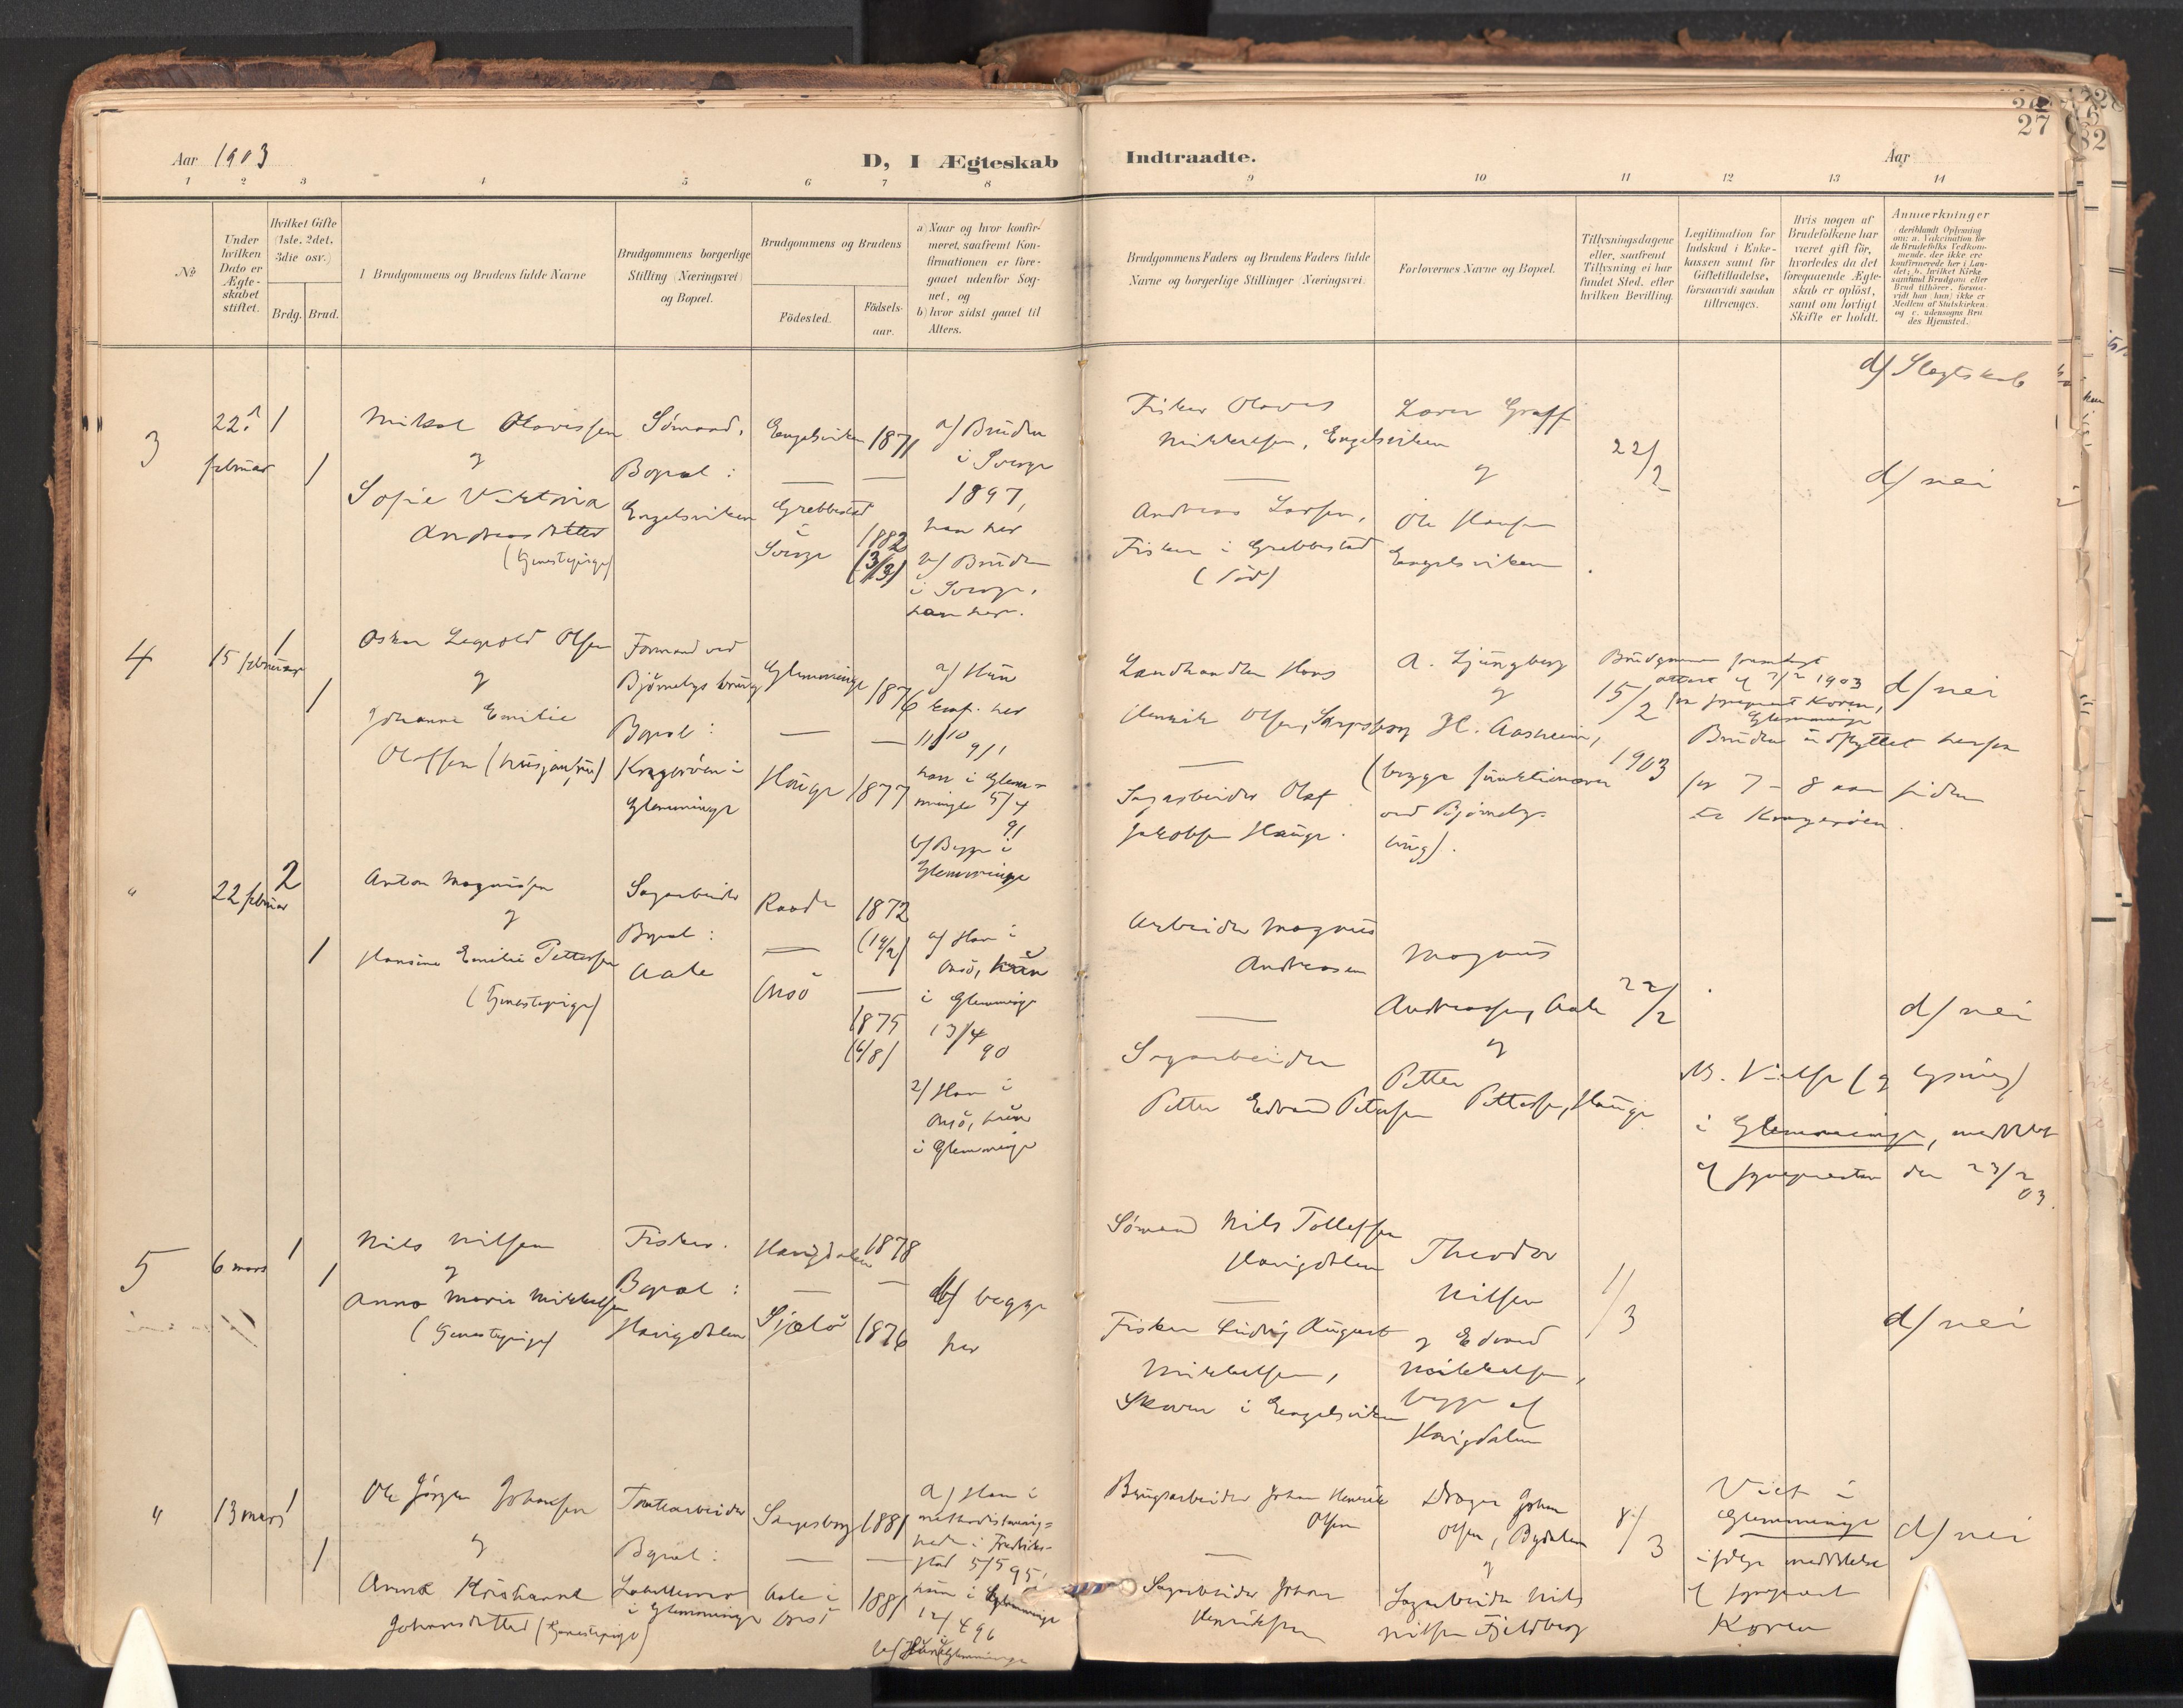 Aar 1903
D, I Ægteskab Indtraadte.
Aar
27
1 2 3 4 5 6 7 8 9 10 11 12 13 14
No
Under hvilken Dato er Ægteskabet stiftet.
Hvilket Gifte (1ste. 2det. 3die osv.)
Brdg. Brud.
Brudgommens og Brudens fulde Navne
Brudgommens borgerlige Stilling (Næringsvei) og Bopæl.
Brudgommens og Brudens
Födested.
Födselsaar.
a) Naar og hvor konfirmeret, saafremt Konfirmationen er foregaaet udenfor Sognet, og
b) hvor sidst gaaet til Alters.
Brudgommens Faders og Brudens Faders fulde Navne og borgerlige Stillinger (Næringsvei)
Forlovernes Navne og Bopæl.
Tillysningsdagene eller, saafremt Tillysning ei har fundet Sted, efter hvilken Bevilling.
Legitimation for Indskud i Enkekassen samt for Giftetilladelse, forsaavidt saadan tiltrænges.
Hvis nogen af Brudefolkene har været gift för, hvorledes da det foregaaende Ægteskab er oplöst, samt om lovligt Skifte er holdt.
Anmerkninger
d) Slegtskab
3
22. februar
1
1
Mikal Olavissen
og
Sofie Viktoria
Andreasdatter
(Tjenestepige)
Sömand.
Bopæl:
Engelsviken
Engelsviken 1871
Grebbestad
Sverge
1882
(3/3)
a) Bruden
i Sverge
1897,
han her
b) Bruden
i Sverge,
han her.
Fisker Olaves
Mikkelsen, Engelsviken
Andreas Larsen,
Fisker i Grebbestad
(död)
Lærer Graff
og
Ole Hansen
Engelsviken
22/2
d) nei
4
15 februar
1
1
Oskar Leopold Olsen
og
Johanne Emilie
Olafsen (husjomfru)
Formand ved
Björnebys brug
Bopæl:
Kragerøen i
Glemminge
Glemminge 1876
Hauge 1877
a) Hun
konf. her
11/10 91
han i Glemminge
5/4 91
b) Begge i
Glemminge
Landhandler Hans
Henrik Olsen, Sarpsborg
Sagarbeider Olaf
Jakobsen Hauge.
A. Ljungberg
og
H. Aasheim,
(begge funktionærer
ved Björnebys
brug).
15/2 1903
Brudgommen fremlagt
attest af 7/2 1903
fra sogneprest Koren,
Glemminge
Bruden udflyttet herfra
for 7-8 aar siden
til Kragerøen.
d) nei
"
22 februar
2
1
Anton Magnussen
og
Hansine Emilie Pettersen
(Tjenestepige)
Sagarbeider
Bopæl:
Aale
Raade 1872
Onsö
1875
(6/8)
a) Han i
Onsö, hun
i Glemminge
13/4 90
b) Han i
Onsö, hun
i Glemminge
Arbeider Magnus
Andreasen
Sagarbeider
Petter Edvard Petersen
Magnus
Andreassen, Aale
og
Petter
Pettersen, Hauge
22/2
d) nei
NB. Vielse (og lysning)
i Glemminge, meddelt
af sognepresten den 23/2 03.
5
6 mars
1
1
Nils Nilsen
og
Anna Marie Mikkelsen
(Tjenestepige)
Fisker.
Bopæl:
Haugdalen
Haugdalen 1878
Sjælö 1876
b) begge
her
Sömand Nils Tollefsen
Haugdalen
Fisker Ludvig August
Mikkelsen,
Skoven i Engelsviken
Theodor
Nilsen
og Edvard
Mikkelsen,
begge af
Haugdalen
1/3
d) nei
"
13 mars
1
1
Ole Jörgen Johansen
og
Anna Kristianne
Johansdatter (Tjenestepige)
Tomtearbeider
Bopæl:
i Glemminge
Sarpsborg 1881
Aale i
Onsö
1881
a) Han i
methodistmenigheden
i Fredrikstad
5/5 95
hun i Glemminge
12/4 96
b) Hun i Glemminge
Brugsarbeider Johan Henrik
Olsen
Sagarbeider Johan
Henriksen
Drager Johan
Olsen, Bydalen
og
Sagarbeider Nils
Nilsen Fjeldberg
8/3
Viet i
Glemminge
ifölge meddelelse
af sogneprest
Koren
d) nei